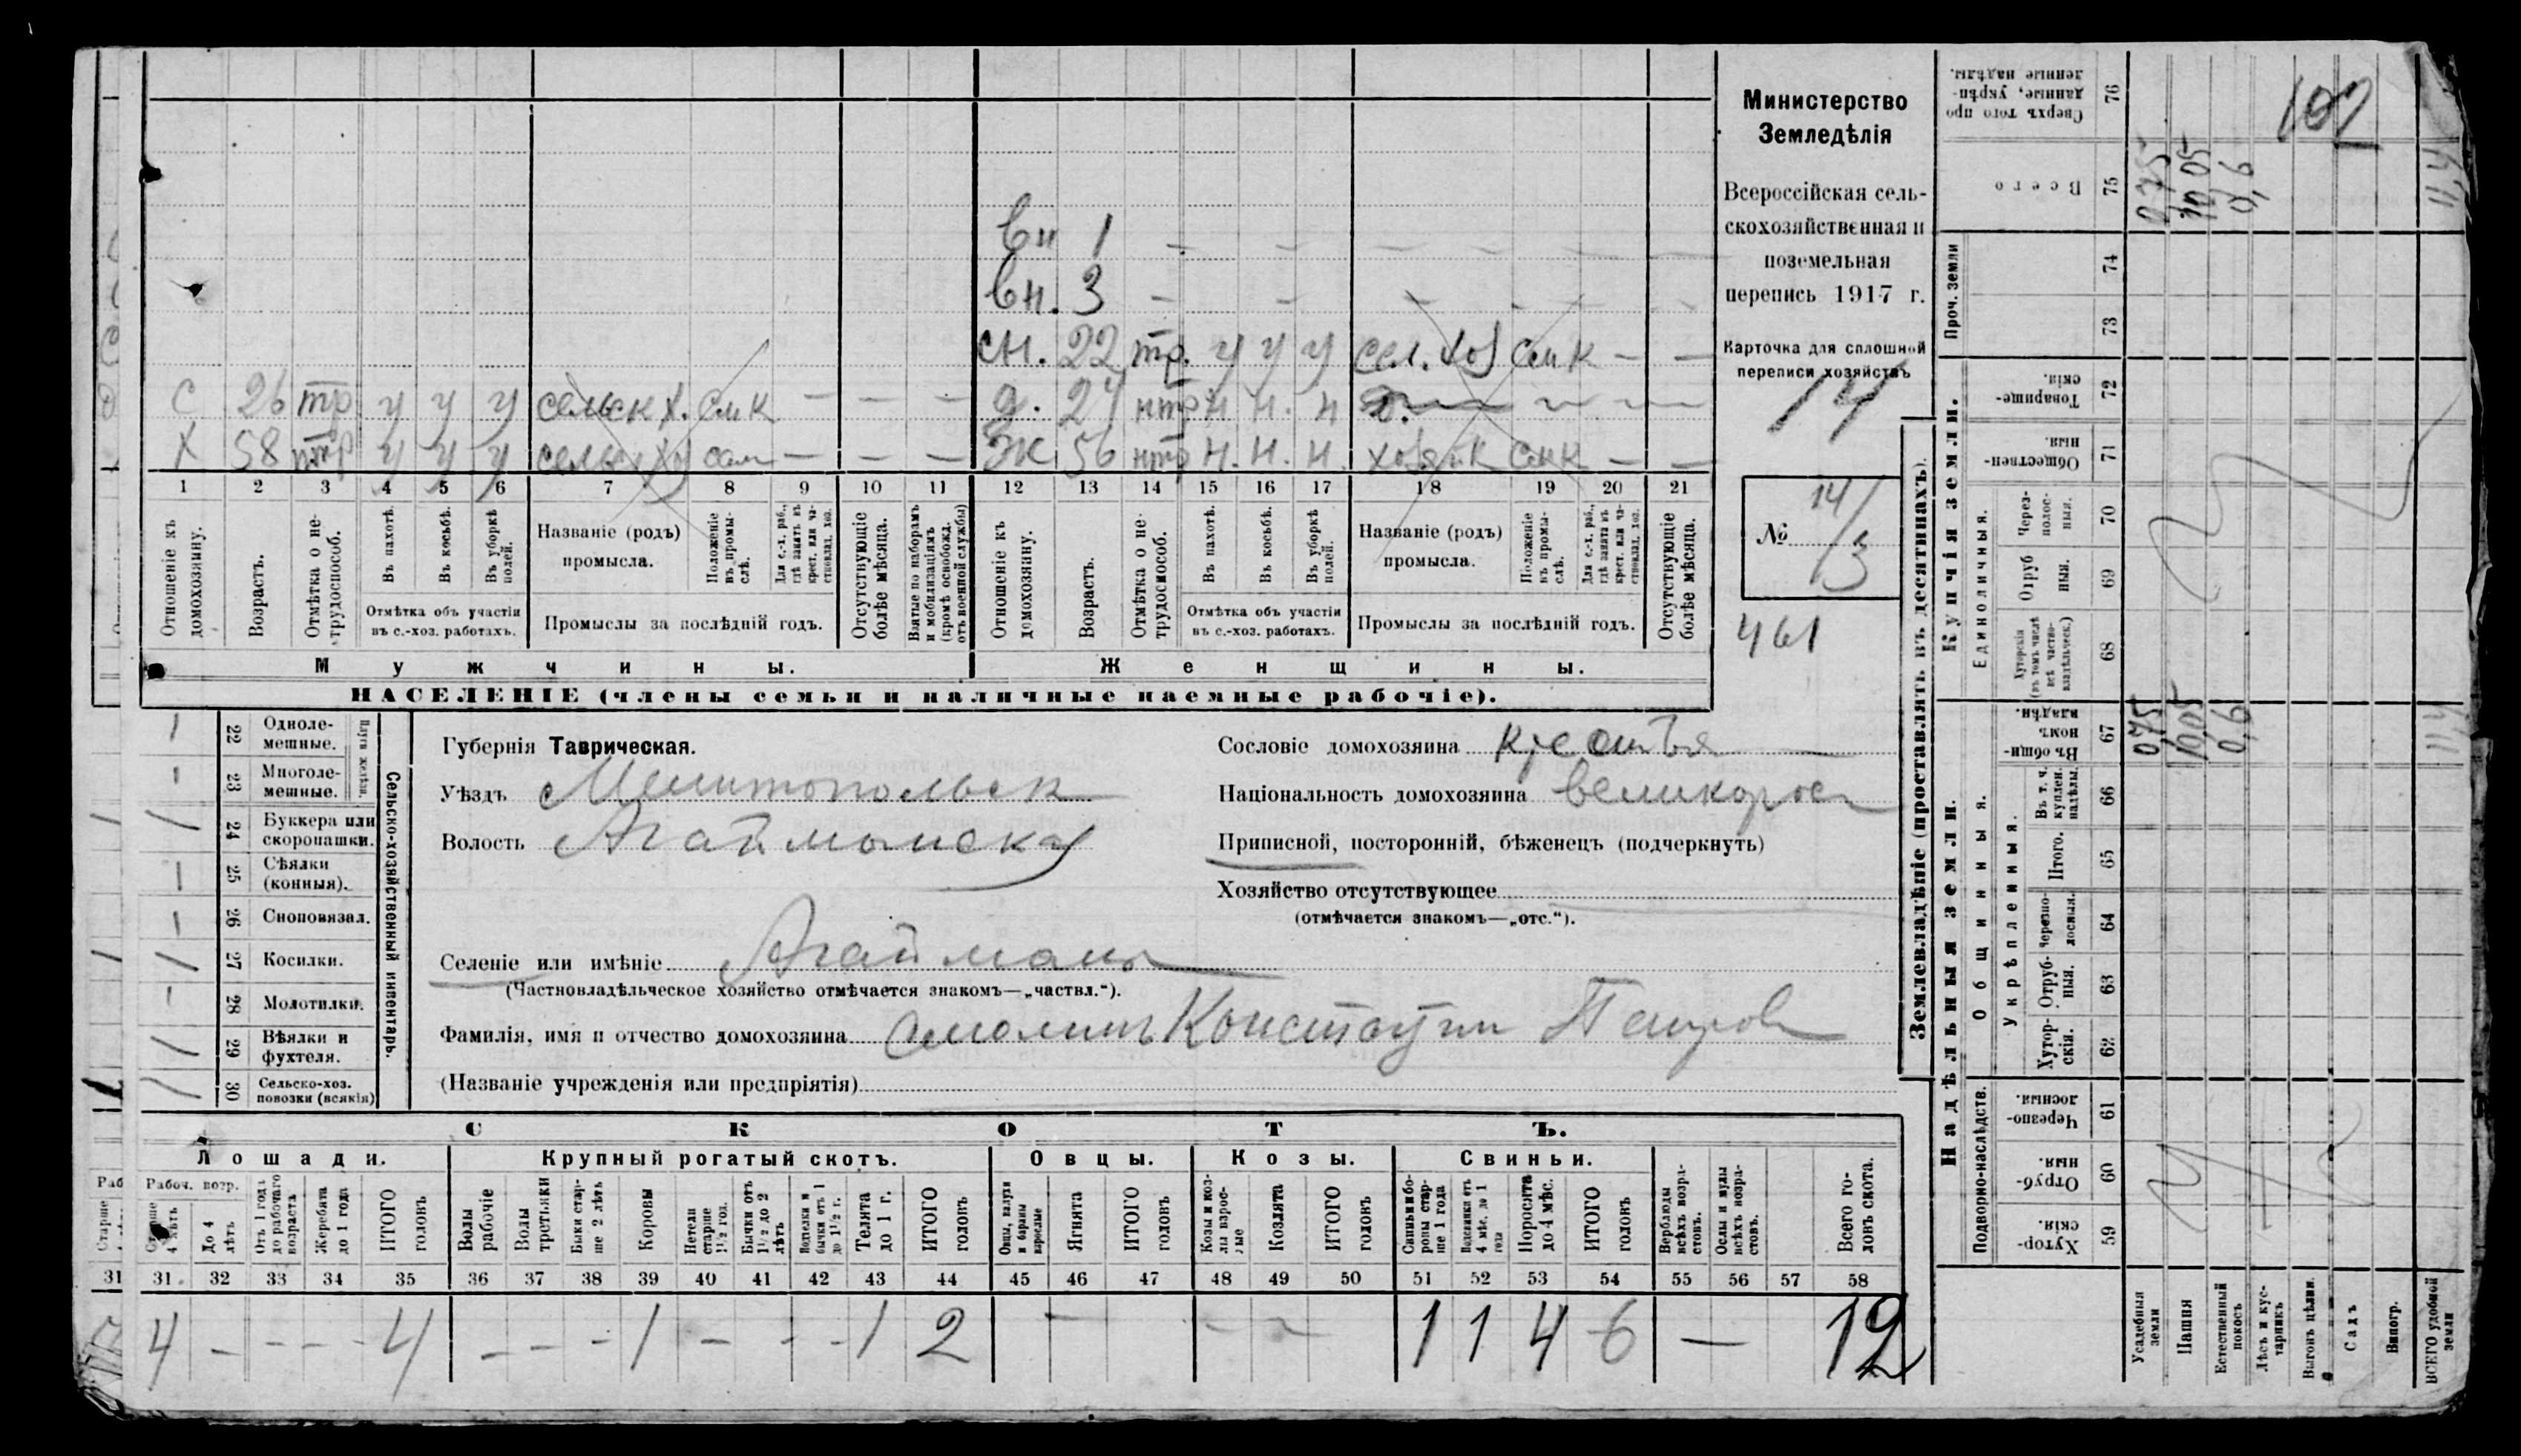 вн 1 - - - - - -
вн. 3 - - - - - -
сн. 22 тр. у у у сел. хоз сем к - -
С 26 тр у у у сельск х. сем к - - - д. 24 нтр н н. н
Х 58 у у у хоз - - - Ж 56 нтр н. н. н. сем к - -
1 2 3 4 5 6 7 8 9 10 11 12 13 14 15 16 17 18 19 20 21
Отношеніе къ домохозяину.
Возрастъ.
Отмѣтка о не-трудоспособ.
Въ пахотѣ.
Въ косьбѣ.
Въ уборкѣ полей.
Отмѣтка объ участіи
въ с.-хоз. работахъ.
Названіе (родъ)
промысла.
Положеніе въ промы-слѣ.
Для с.-х. раб., гдѣ занятъ въ крест. или ча-стновлад. хоз.
Промыслы за послѣдній годъ.
Отсутствующіе болѣе мѣсяца.
Взятые по наборамъ и мобилизаціямъ (кромѣ освобожд. отъ военной службы)
Отношеніе къ домохозяину.
Возрастъ.
Отмѣтка о не-трудоспособ.
Въ пахотѣ.
Въ косьбѣ.
Въ уборкѣ полей.
Отмѣтка объ участіи
въ с.-хоз. работахъ.
Названіе (родъ)
промысла.
Положеніе въ промы-слѣ.
Для с.-х. раб., гдѣ занята въ крест. или ча-стновлад. хоз.
Промыслы за послѣдній годъ.
Отсутствующіе болѣе мѣсяца.
Мужчины. Женщины.
НАСЕЛЕНІЕ (члены семьи и наличные наемные рабочіе).
Министерство
Земледѣлія
Всероссійская сель-
скохозяйственная и
поземельная
перепись 1917 г.
Карточка для сплошной
переписи хозяйствъ
14
№ 14/3
461
Сельско-хозяйственный инвентарь.
Плуги желѣзн.
22 Одноле-мешные.
23 Многоле-мешные.
24 Буккера или скоропашки.
25 Сѣялки (конныя).
26 Сноповязал.
27 Косилки.
28 Молотилки.
29 Вѣялки и фухтеля.
30 Сельско-хоз. повозки (всякія)
Губернія Таврическая.
Уѣздъ Мелитопольск
Волость Агайманск
Селеніе или имѣніе Агайманъ
(Частновладѣльческое хозяйство отмѣчается знакомъ—„частвл.“).
Фамилія, имя и отчество домохозяина Смолинъ Констатин Петров
(Названіе учрежденія или предпріятія)
Сословіе домохозяина
Національность домохозяина великорос
Приписной, посторонній, бѣженецъ (подчеркнуть)
Хозяйство отсутствующее
(отмѣчается знакомъ—„отс.“).
СКОТЪ.
Лошади. Крупный рогатый скотъ. Овцы. Козы. Свиньи.
Рабоч. возр.
Старше 4 лѣтъ
До 4 лѣтъ
Отъ 1 года до рабочаго возраста
Жеребята до 1 года
ИТОГО головъ
Волы рабочіе
Волы третьяки
Быки стар-ше 2 лѣтъ
Коровы
Нетели старше 1½ год.
Бычки отъ 1½ до 2 лѣтъ
Нетелки и бычки отъ 1 до 1½ г.
Телята до 1 г.
ИТОГО головъ
Овцы, валухи и бараны взрослые
Ягнята
ИТОГО головъ
Козы и коз-лы взрос-лые
Козлята
ИТОГО головъ
Свиньи и бо-ровы стар-ше 1 года
Подсвинки отъ 4 мѣс. до 1 года
Поросята до 4 мѣс.
ИТОГО головъ
Верблюды всѣхъ возра-стовъ.
Ослы и мулы всѣхъ возра-стовъ.
Всего го-ловъ скота.
31 31 32 33 34 35 36 37 38 39 40 41 42 43 44 45 46 47 48 49 50 51 52 53 54 55 56 57 58
4 - - - 4 - - - 1 - - - 1 2 - - - 1 1 4 6 - 12
Землевладѣніе (проставлять въ десятинахъ).
Надѣльныя земли. Купчія земли. Проч. земли
Подворно-наслѣдств.
Общинныя.
Укрѣпленныя.
Единоличныя.
59 Хутор-скія.
60 Отруб-ныя.
61 Черезпо-лосныя.
62 Хутор-скія.
63 Отруб-ныя.
64 Черезпо-лосныя.
65 Итого.
66 Въ т. ч. куплен. надѣлы.
67 Въ общин-номъ владѣн.
68 Хуторскія (въ томъ числѣ всѣ частно-владѣльческ.)
69 Отруб ныя.
70 Через-полос-ныя.
71 Обществен-ныя.
72 Товарище-скія.
73
74
75 Всего
76 Сверхъ того про данные, укрѣп-ленные надѣлы.
Усадебныя земли
Пашня
Естественный покосъ
Лѣсъ и кус-тарникъ
Выгонъ цѣлин.
Садъ
Виногр.
ВСЕГО удобной земли
0,75 10,05 0,6 11,4
0,75 10,05 0,6 11,4